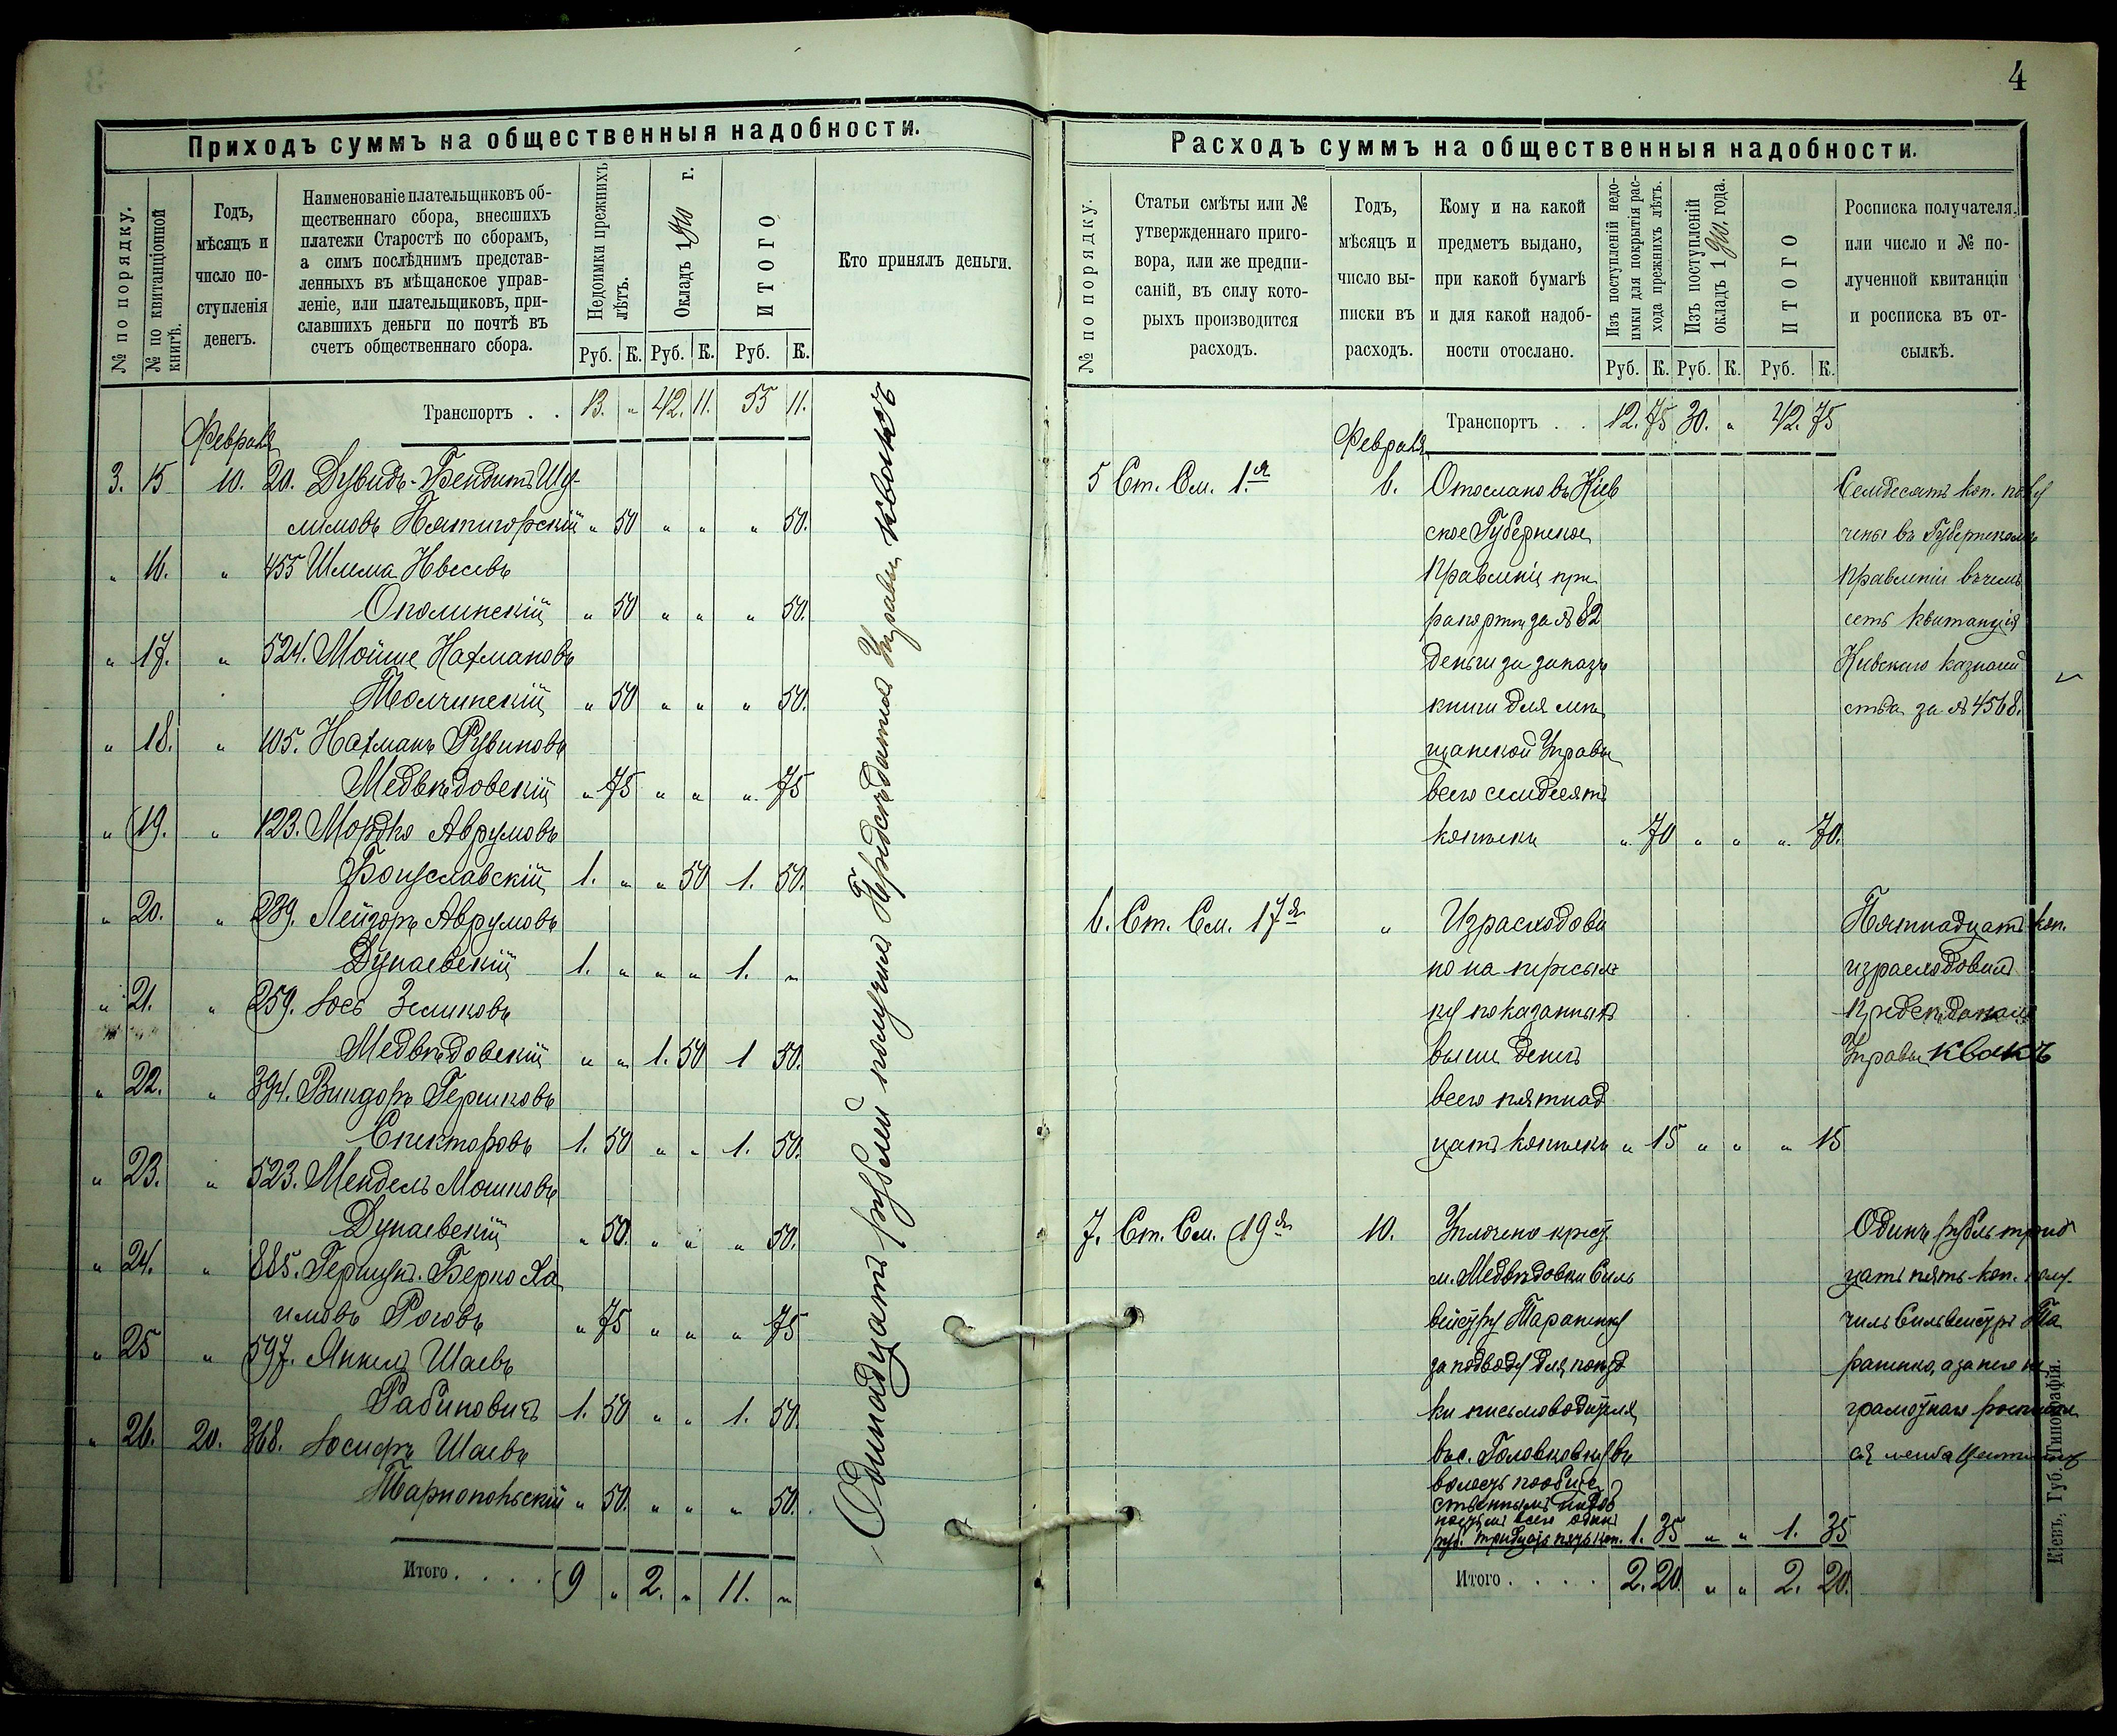 4
Приходъ суммъ на общественныя надобности.
№ по порядку.
№ по квитанціонной книгѣ.
Годъ, мѣсяцъ и число поступленія денегъ.
Наименованіе плательщиковъ об-
щественнаго сбора, внесшихъ
платежи Старостѣ по сборамъ,
а симъ послѣднимъ представ-
ленныхъ въ мѣщанское управ-
леніе, или плательщиковъ, при-
славшихъ деньги по почтѣ въ
счетъ общественнаго сбора.
Недоимки прежнихъ лѣтъ.
Окладъ 1 г.
ИТОГО
Кто принялъ деньги.
Руб. К. Руб. К. Руб. К.
Транспортъ . . 13. " 42. 11. 55 11.
Февраля
3. 15 10. 20. Дувидъ-Бендитъ Шу-
лимовъ Пятигорскій " 50 " " " 50.
" 16. " 455 Шлема Ивсевъ
Ополинскій " 50 " " " 50.
" 17. " 524. Мойше Нахмановъ
Толчинскій " 50 " " " 50.
" 18. " 105. Нахманъ Рувиновъ
Медвѣдовскій " 75 " " " 75
" 19. " 123. Мордко Аврумовъ
Богуславскій 1. " " 50 1. 50.
" 20. " 239. Лейзоръ Аврумовъ
Дунаевскій 1. " " " 1. "
" 21. " 259. Іось Зеликовъ
Медвѣдовскій " " 1. 50 1 50.
" 22. " 394. Виндоръ Гершковъ
Спекторовъ 1. 50 " " 1. 50.
" 23. " 523. Мендель Мошковъ
Дунаевскій " 50. " " " 50.
" 24. " 885. Гершукъ. Берко Ха
имовъ Роговъ " 75 " " " 75
" 25 " 597. Янкель Шаевъ
Рабиновичъ 1. 50 " " 1. 50.
" 26. 20. 368. Іосифъ Шаевъ
Тарнопольскій " 50. " " " 50.
Итого . . . . 9 " 2. " 11. "
Одинадцать рублей получилъ Предсѣдатель Управы Квакъ
Расходъ суммъ на общественныя надобности.
№ по порядку.
Статьи смѣты или №
утвержденнаго приго-
вора, или же предпи-
саній, въ силу кото-
рыхъ производится
расходъ.
Годъ,
мѣсяцъ и
число вы-
писки въ
расходъ.
Кому и на какой
предметъ выдано,
при какой бумагѣ
и для какой надоб-
ности отослано.
Изъ поступленій недо-
имки для покрытія рас-
хода прежнихъ лѣтъ.
Изъ поступленій
окладъ 1 года.
ИТОГО
Росписка получателя,
или число и № по-
лученной квитанціи
и росписка въ от-
сылкѣ.
Руб. К. Руб. К. Руб. К.
Транспортъ . . 12. 75 30. " 42. 75
Февраля
5 Ст. См. 1.я 6. Отослано въ Кіев
ское Губернское
Правленіе при
рапортѣ за № 82
деньги за заказъ
книги для мѣ
щанской Управы
всего семдесятъ
копѣекъ " 70 " " " 70.
Семдесятъ коп. полу
чены въ Губернскомъ
Правленіи въ чемъ
есть квитанція
Кіевскаго Казначей
ства за № 4568.
6. Ст. См. 17я " Израсходова
но на пересыл
ку показанныхъ
выше денегъ
всего пятнад
цать копѣекъ " 15 " " " 15
Пятнадцать коп.
израсходовалъ
Предсѣдатель
Управы Квакъ
7. Ст. См. 19я 10. Уплочено крест.
м. Медвѣдовки Силь
вестру Тараненку
за подводу для поѣзд
ки письмоводителя
въ с. Головковку въ
волость по обще
ственнымъ надоб
ностямъ всего одинъ
руб. тридцать пять коп. 1. 35 " " 1. 35
Одинъ рубль трид
цать пять коп. полу
чилъ Сильвестръ Та
раненко, а за него не
грамотнаго росписал
ся
Итого . . . . 2. 20. " " 2. 20.
Кіевъ, Губ. Типографія.